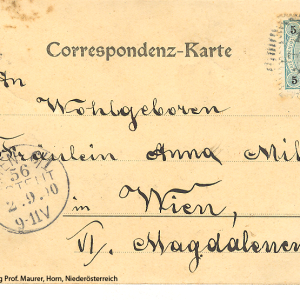 Correspondenz-Karte
5
5
An
Wohlgeboren
Fräulein Anna Mil
in Wien,
VI. Magdalenen
56
2.9.00
9-11V
g Prof. Maurer, Horn, Niederösterreich